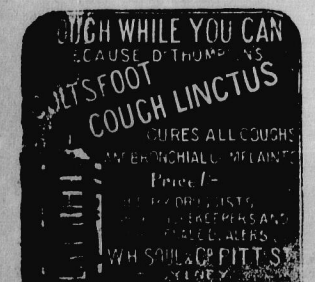 COUGH WHILE YOU CAN
BECAUSE Dr THOMPSON'S
COLTSFOOT
COUGH LINCTUS
CURES ALL COUGHS
AND BRONCHIAL COMPLAINTS
Price 1/-
STOREKEEPERS AND
DEALERS
WH SOUL & Co PITT ST
SYDNEY